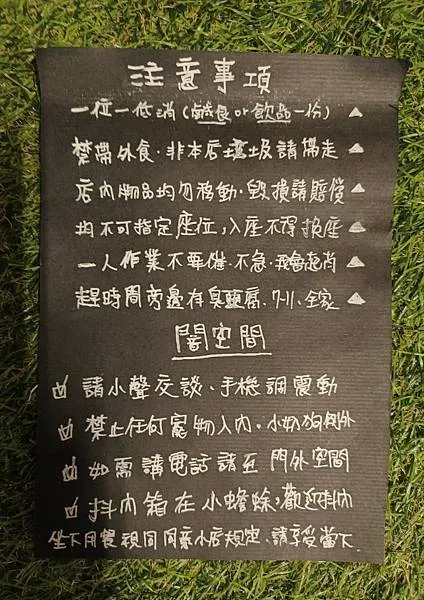 注意事項
一位一低消(鹹食or飲品一份)
禁帶外食.非本店垃圾請帶走
店內物品均勿移動,毀損請賠償
均不可指定座位,入座不得換座
一人作業不要催.不急.我會超尚
趕時間旁邊有臭鹽腐、7-11、全家
闇空間
請小聲交談、手機調震動
禁止任何寵物入內。小奶狗例外
如需講電話請至門外空間
抖內箱在小蟾蜍,歡迎抖內
坐下用餐視同同意小店規定、請享受當下.